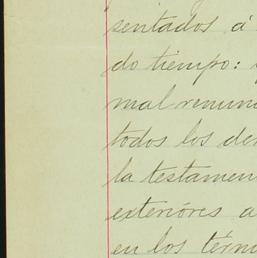 sentados á
do tiempo:
mal renun
todos los de
la testamen
exteriores a
en los térm